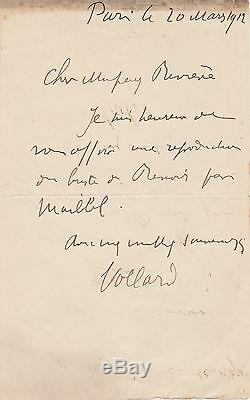 Paris le 20 Mars 1912
Cher Monsieur Rivière
Je suis heureux de
vous offrir une reproduction
du buste de Renoir par
Maillol.
Avec mes meilleurs souvenirs
Vollard